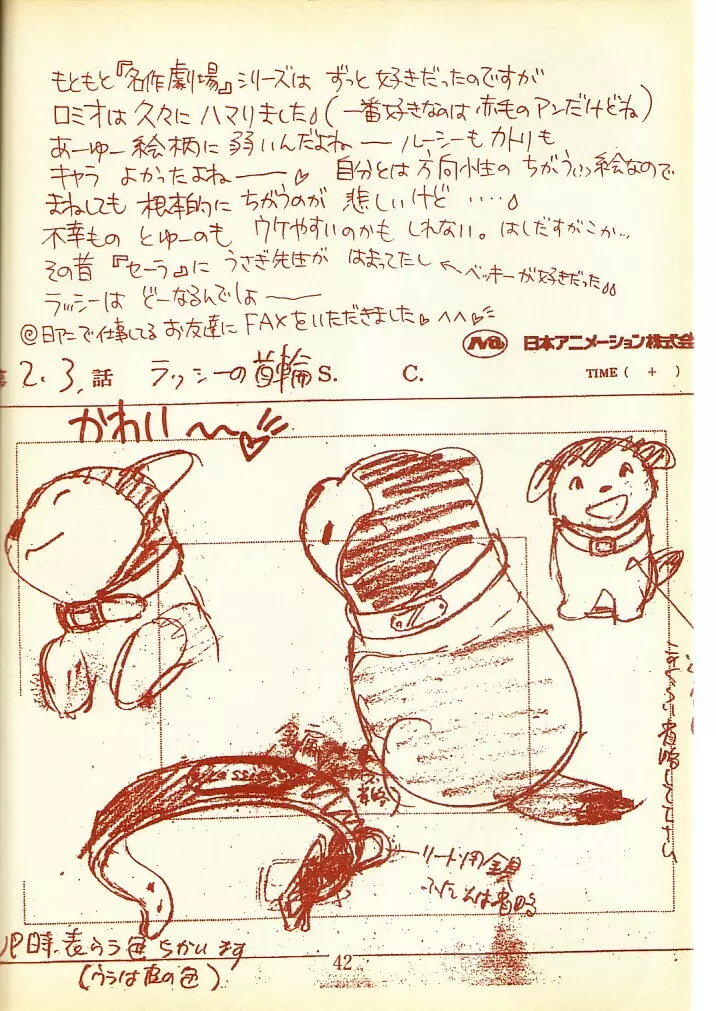 もともと『名作劇場』シリーズは ずっと好きだったのですが
ロミオは久々に ハマりました。(一番好きなのは赤毛のアンだけどね)
あーゆー絵柄に弱いんだよねー ルーシーも カトリも
キャラ よかったよねー♡ 自分とは方向性のちがうい絵なので
まねしても 根本的に ちがうのが 悲しいけど ‥‥。
不幸もの とゆーのも ウケやすいのかも しれない。はしだすがこか…
その昔 『セーラ』に うさぎ先生が はまってたし ←ベッキーが好きだった。
ラッシーは どーなるんでしょー
@日アニで仕事してる お友達に FAXをいただきました♡ ^^♡
日本アニメーション株式会
2.3.話 ラッシーの首輪 S. C. TIME ( + )
かわいー〜♡
金属
Lassie
リード用金具
ふだんは省略
OP時、表うら色ちがいます
(ウラは皮の色)
42